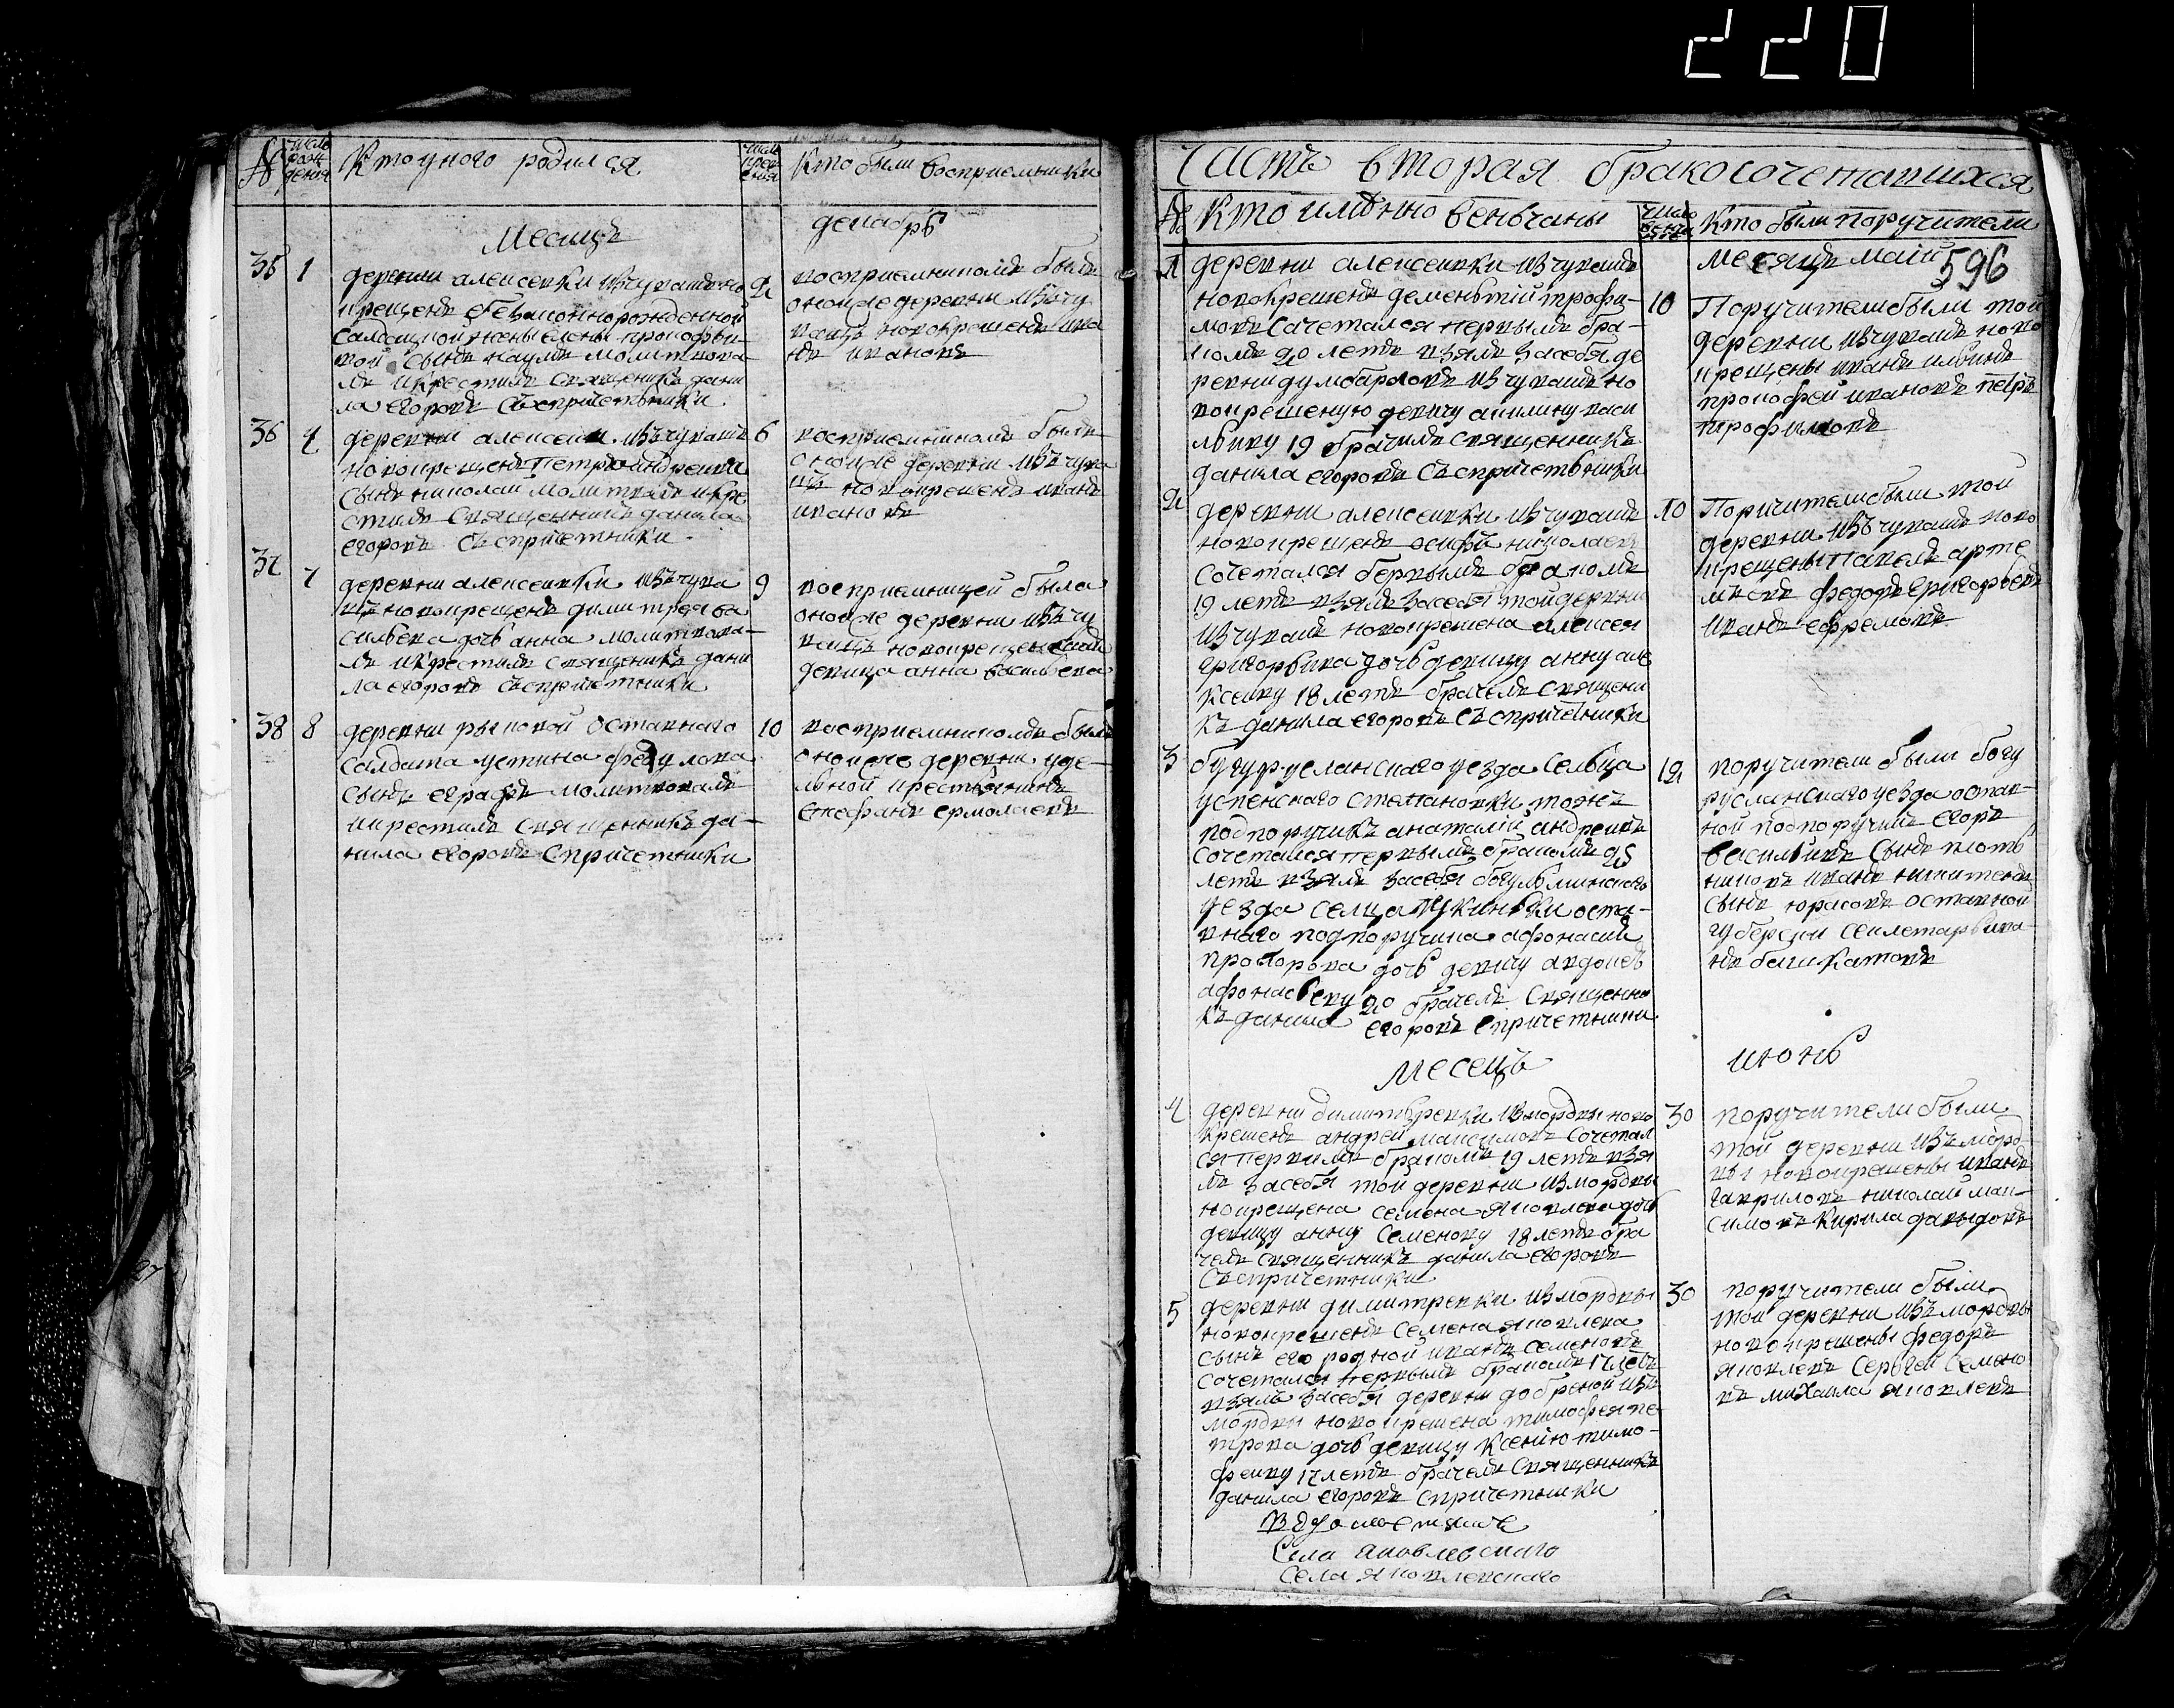 220
№
число рождения
Кто у кого родился
число крещения
Кто были восприемники
Месяцъ
декабрь
35 1
деревни алексеевки изчувашъ но
крещенъ
салдацкой жены елены прокофье
вой сынъ наумъ молитвова
лъ икрестилъ священникъ дани
ла егоровъ съспричетники.
2
восприемникомъ былъ
оной же деревни изъчу
вашъ новокрещенъ ива
нъ ивановъ
36 4
деревни алексеевки изъчувашъ
новокрещенъ петръ андреевъ
сынъ николай молитвалъ икре
стилъ священникъ данила
егоровъ съспричетники.
6
восприемникомъ былъ
оной же деревни изъчува
шъ новокрещенъ иванъ
ивановъ
37 7
деревни алексеевки изъчува
шъ новокрещенъ димитрея ва
сильева дочь анна молитвова-
лъ икрестилъ священикъ дани
ла егоровъ съспричетники
9
восприемницей была
оной же деревни изъчу
вашъ новокрещенской
девица анна васильева
38 8
деревни рычковой отставнаго
салдата устина федулова
сынъ еграфъ молитвовалъ
икрестилъ священникъ да-
нила егоровъ спричетники
10
восприемникомъ былъ
оной же деревни уде-
льной крестьянинъ
стефанъ ермолаевъ
Часть вторая бракосочетавшихся
№
Кто имянно веньчаны
число венчания
Кто были поручители
месяцъ маий
596
1
деревни алексеевки изчувашъ
новокрещенъ дементий трофи-
мовъ сачетался первымъ бра-
комъ 20 летъ взялъ засебя де
ревни думбаровъ изчувашъ но
вокрещеную девицу акилину васи
льеву 19 брачилъ священникъ
данила егоровъ съспричетьники
10
Поручители были той
деревни изчувашъ ново
крещены иванъ ильинъ
прокофей ивановъ петръ
трофимовъ
2
деревни алексеевки изчувашъ
новокрещенъ осифъ николаевъ
сочетался первымъ бракомъ
19 летъ взялъ засебя той деревни
изчувашъ новокрещена алексея
григорьева дочь девицу анну але
ксееву 18 летъ брачелъ священи
къ данила егоровъ съспричетники
10
Поручители были той
деревни изъчувашъ ново
крещены павелъ арте
мьевъ федоръ григорьевъ
иванъ ефремовъ
3
бугурусланскаго уезда сельца
успенскаго степановки тожъ
подпоручикъ анаталий андреевъ
сочетался первымъ бракомъ 25
летъ взялъ засебя бугульминскаго
уезда селца отста-
внаго подпоручика афонасия
дочь девицу авдотью
афонасьеву 20 брачелъ священни
къ данила егоровъ спричетники
12
поручители были бугу
русланскаго уезда остав-
ной подпоручикъ егоръ
васильевъ сынъ плоть
никовъ иванъ никитевъ
сынъ юрасовъ оставной
губерски секлетарь ива
нъ
месецъ
июнь
4
деревни димитревки измордвы ново
крещенъ андрей максимовъ сочетал
ся первымъ бракомъ 19 летъ взя
лъ засебя той деревни измордвы
нокрещена семена яковлева дочь
девицу анну семенову 18 летъ бра
челъ священникъ данила егоровъ
съспричетники
30
поручители были
той деревни изъморд-
вы новокрещены иванъ
гавриловъ николай мак-
симовъ кирила давыдовъ
5
деревни димитревки измордвы
новокрещенъ семена яковлева
сынъ его родной иванъ семеновъ
сочетался первымъ бракомъ 17 летъ
взялъ засебя деревни добреной изъ
мордвы новокрещена тимофея пе-
трова дочь девицу ксению тимо-
фееву 17 летъ брачелъ священникъ
данила егоровъ спричетники
30
поручители были
той деревни изъмордвы
новокрещены федоръ
яковлевъ сергей семено
въ михаила яковлевъ
Села яковлевскаго
Села яковлевскаго